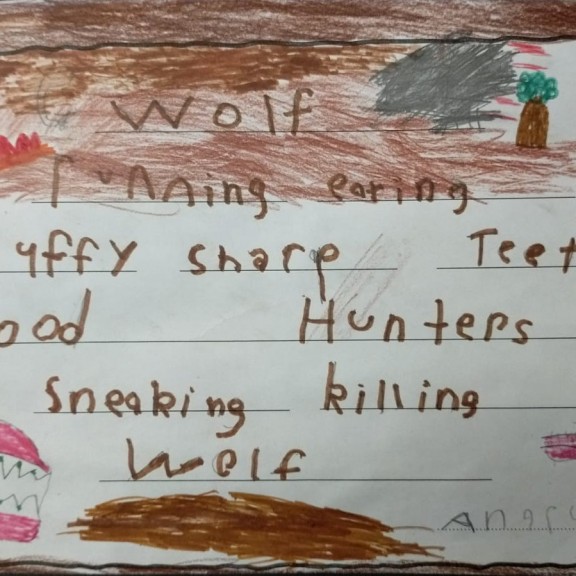 Wolf
running earing
uffy sharp Teet
ood Hunters
sneaking killing
Wolf
Angry